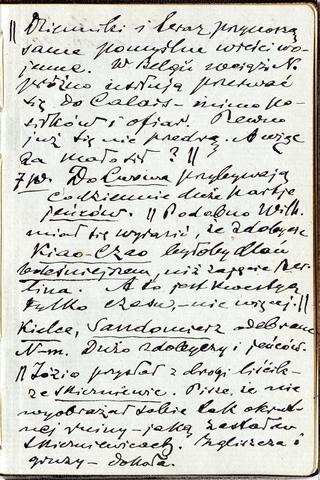 || Dzienniki i teraz przynoszą
same pomyślne wieści wo-
jenne. W Belgii wciąż N.
próżno usiłują przerwać
się do Calais – mimo po-
siłków i ofiar. Pewno
już się nie przedrą. A więc
za mało sił? ||
7 w. Do Lwowa przybywają
codziennie duże partje
jeńców. || Podobno Wilh.
miał się wyrazić, że zdobycie
Kiao-Czao byłoby dlań
boleśniejszem, niż zajęcie Ber-
lina. A to jest kwestyą
tylko czasu, – nie więcej. ||
Kielce, Sandomierz odebrane
N-m. Dużo zdobyczy i jeńców.
|| Józio przysłał z drogi liścik –
ze Skierniewic. Pisze, że nie
wyobrażał sobie tak okrut-
nej ruiny – jaką zastał w
Skierniewicach. Zgliszcza i
gruzy – dokoła.